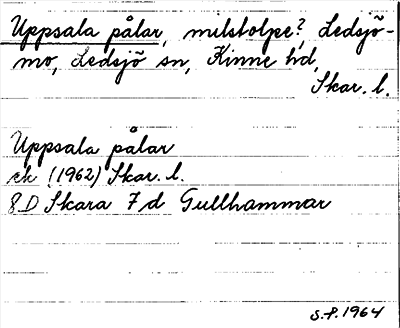 Uppsala pålar, milstolpe?, Ledsjö-
mo, Ledsjö sn, Kinne hd,
Skar. l.
Uppsala pålar
ek (1962) Skar. l.
8D Skara 7d Gullhammar
S.F. 1964